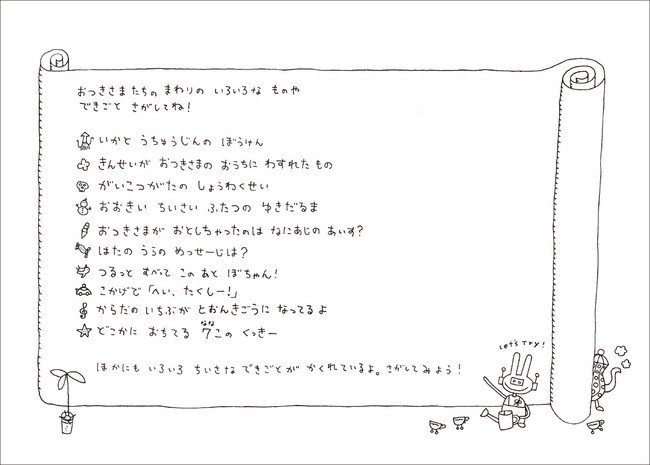 おつきさまたちの まわりの いろいろな ものや
できごと さがしてね！
いかと うちゅうじんの ぼうけん
きんせいが おつきさまの おうちに わすれた もの
がいこつがたの しょうわくせい
おおきい ちいさい ふたつの ゆきだるま
おつきさまが おとしちゃったのは なにあじの あいす？
はたの うらの めっせーじは？
つるっと すべて このあと ぼちゃん！
こかげで「へい、たくしー！」
からだの いちぶが とおんきごうに なってるよ
どこかに おちてる 7この くっきー
なな
ほかにも いろいろ ちいさな できごとが かくれているよ。さがしてみよう！
Let's Try!